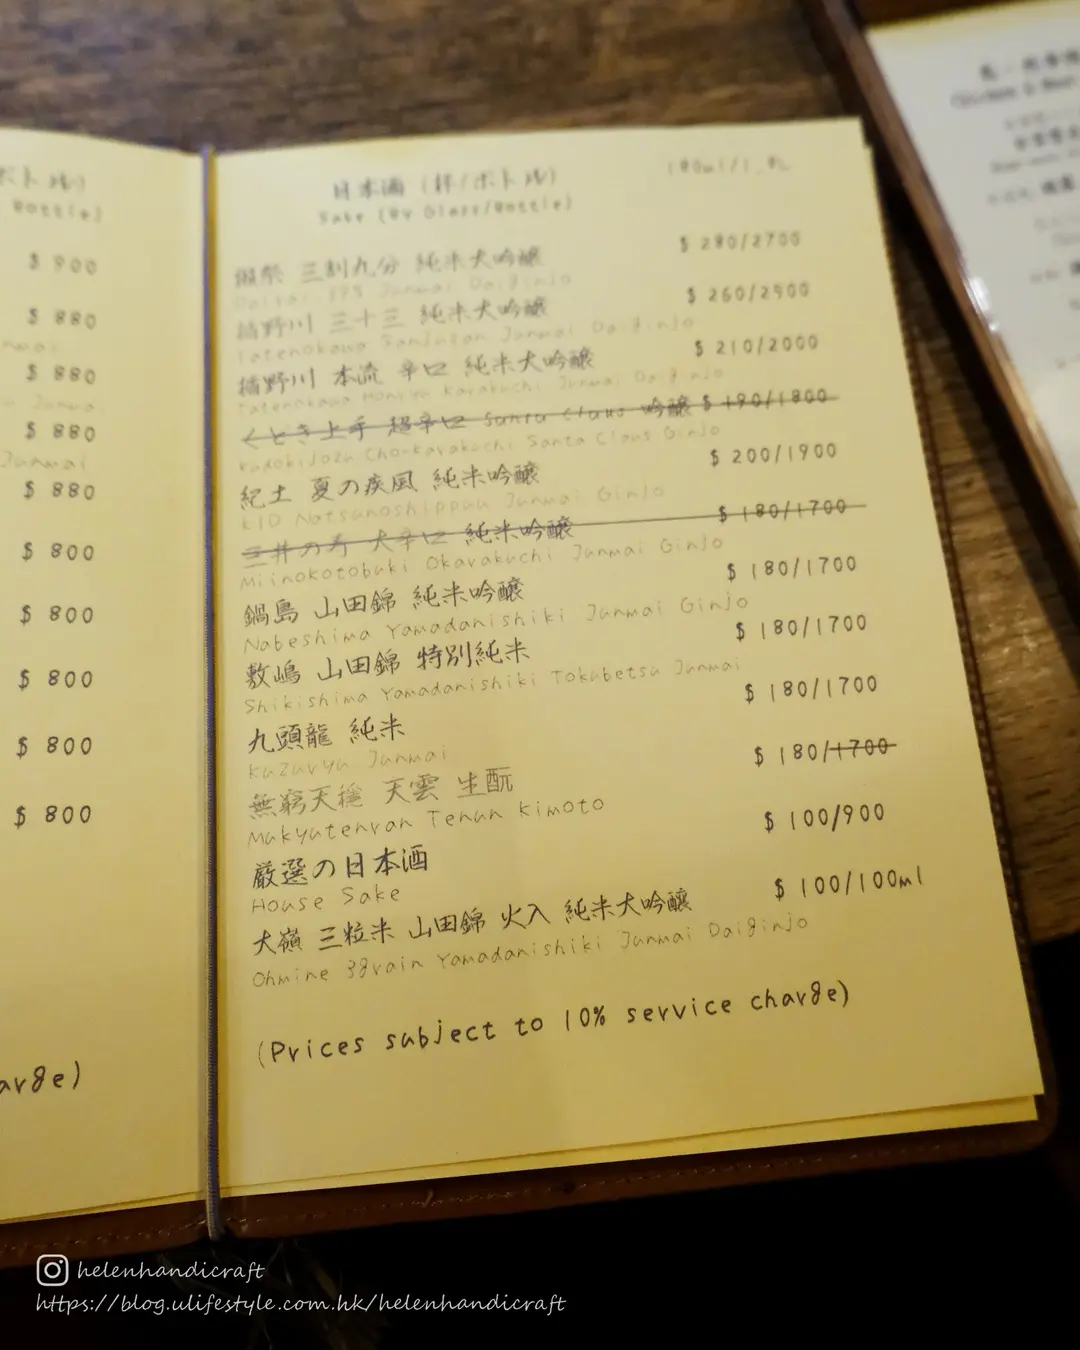 ボトル)
Bottle)
$ 900
$ 880
$ 880
$ 880
$ 880
$ 800
$ 800
$ 800
$ 800
$ 800
日本酒 (杯/ボトル)
Sake (By Glass/Bottle)
獺祭 三割九分 純米大吟醸 $ 280/2700
Junmai Daiginjo
楯野川 三十三 純米大吟醸 $ 260/2500
Tatenokawa Sanjusan Junmai Daiginjo
楯野川 本流 辛口 純米大吟醸 $ 210/2000
Tatenokawa Honryu Karakuchi Junmai Daiginjo
くどき上手 超辛口 Santa Claus 吟醸 $ 190/1800
Kudokijozu Cho-Karakuchi Santa Claus Ginjo
紀土 夏の疾風 純米吟醸 $ 200/1900
KID Natsunoshippuu Junmai Ginjo
三井の寿 大辛口 純米吟醸 $ 180/1700
Miinokotobuki Okarakuchi Junmai Ginjo
鍋島 山田錦 純米吟醸 $ 180/1700
Nabeshima Yamadanishiki Junmai Ginjo
敷嶋 山田錦 特別純米 $ 180/1700
Shikishima Yamadanishiki Tokubetsu Junmai
九頭龍 純米 $ 180/1700
Kuzuryu Junmai
無窮天穏 天雲 生酛 $ 180/1700
Mukyutenran Tenun Kimoto
厳選の日本酒 $ 100/900
House Sake
大嶺 三粒米 山田錦 火入 純米大吟醸 $ 100/100ml
Ohmine 3grain Yamadanishiki Junmai Daiginjo
(Prices subject to 10% service charge)
arge)
helenhandicraft
https://blog.ulifestyle.com.hk/helenhandicraft